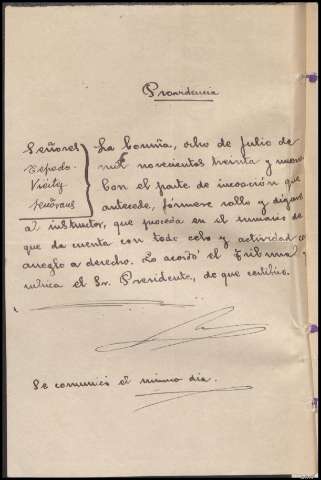 Providencia
Señores
Espado.
Vicity
La Coruña, ocho de Julio de
mil novecientos treinta y nueve
Con el parte de incoación que
antecede, fórmese rollo y dígase
al instructor, que proceda en el sumario de
que da cuenta con todo celo y actividad co
arreglo a derecho. Lo acordó el Tribunal y
rubrica el Sr. Presidente, de que certifico.
Se comunicó el mismo dia.